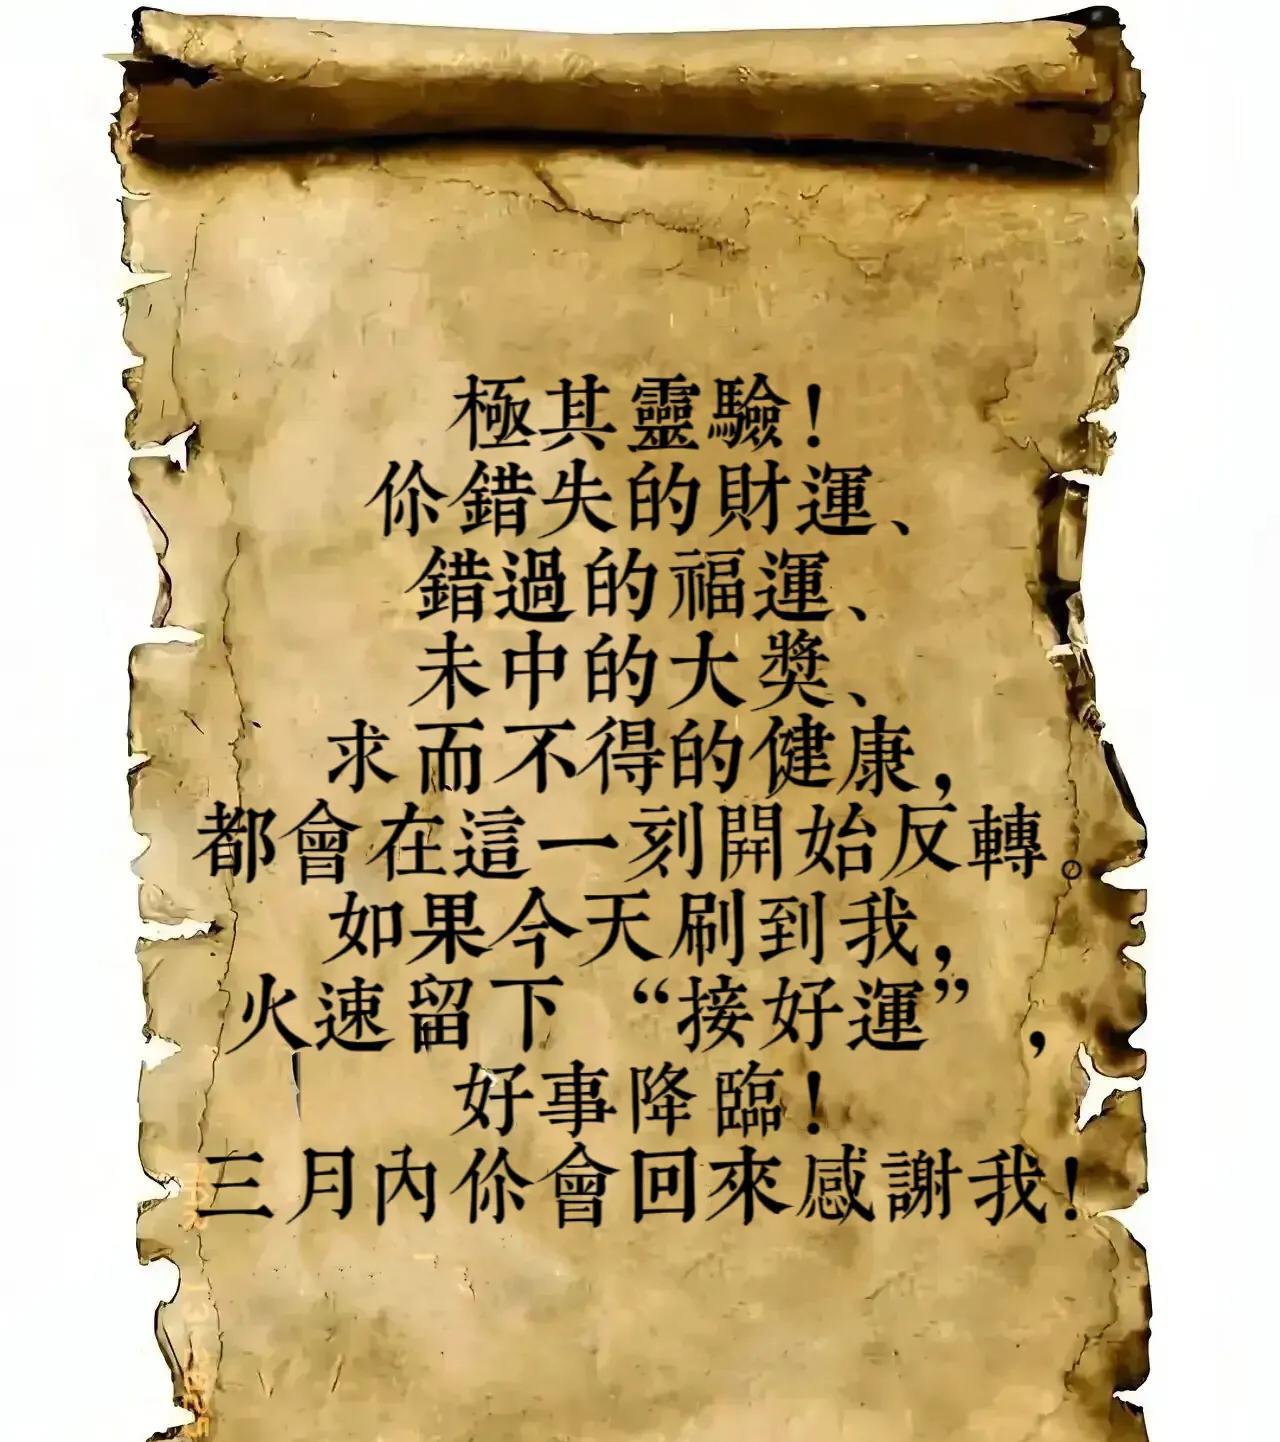 極其靈驗！
你錯失的財運、
錯過的福運、
未中的大獎、
求而不得的健康，
都會在這一刻開始反轉。
如果今天刷到我，
火速留下“接好運”，
好事降臨！
三月內你會回來感謝我！